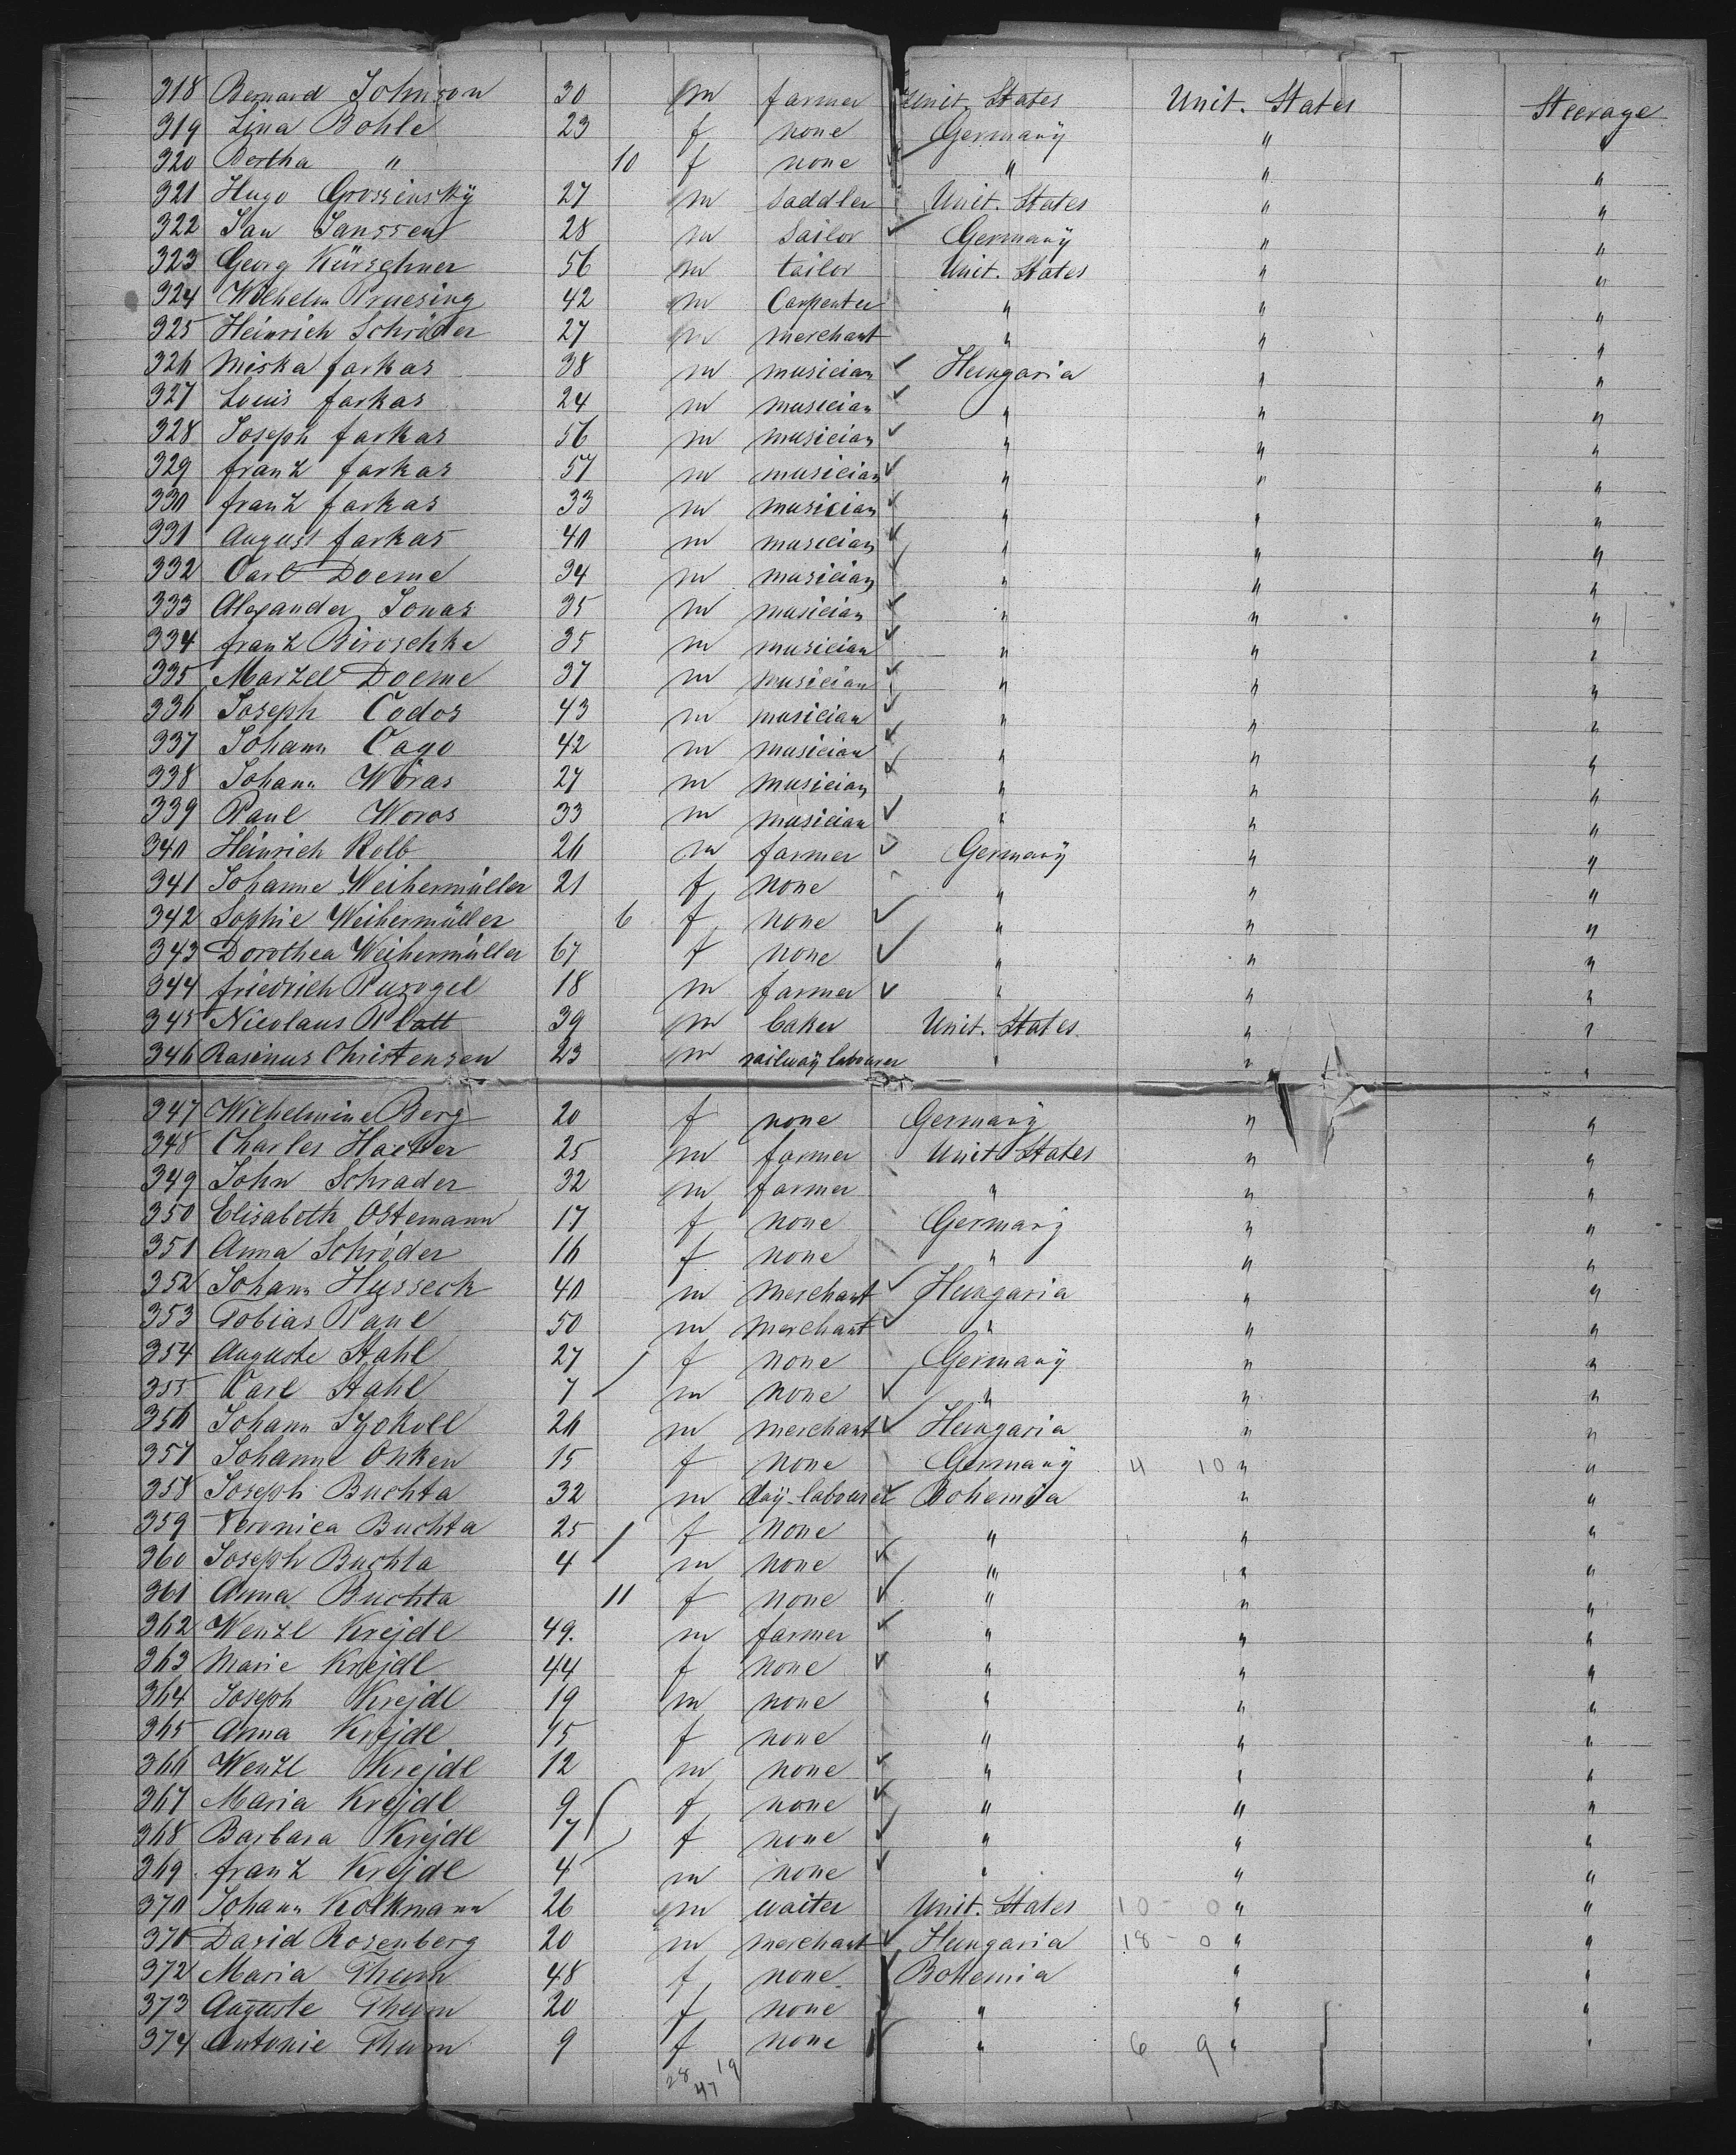 318 Bernard Johnson 30 m farmer Unit. States Unit. States Steerage
319 Lina Bohle 23 f none Germany " "
320 Bertha " 10 f none " " "
321 Hugo Grossinsky 27 m saddler Unit. States " "
322 Jan Janssen 28 m sailor Germany " "
323 Georg Kürschner 56 m tailor Unit. States " "
324 Wilhelm Pruesing 42 m Carpenter " " "
325 Heinrich Schröder 27 m merchant " " "
326 Miska farkas 38 m musician Hungaria " "
327 Louis farkas 24 m musician " " "
328 Joseph farkas 56 m musician " " "
329 franz farkas 57 m musician " " "
330 franz farkas 33 m musician " " "
331 August farkas 40 m musician " " "
332 Carl Doeme 34 m musician " " "
333 Alexander Jonas 35 m musician " " "
334 franz Biroschke 35 m musician " " "
335 Marzel Doeme 37 m musician " " "
336 Joseph Codos 43 m musician " " "
337 Johann Cago 42 m musician " " "
338 Johann Woras 27 m musician " " "
339 Paul Woros 33 m musician " " "
340 Heinrich Kolb 26 m farmer Germany " "
341 Johanne Weihermüller 21 f none " " "
342 Sophie Weihermüller 6 f none " " "
343 Dorothea Weihermüller 67 f none " " "
344 friedrich 18 m farmer " " "
345 Nicolaus Platt 39 m baker Unit. States " "
346 Rasinus Christensen 23 m railway labourer " " "
347 Wilhelmine Berg 20 f none Germany " "
348 Charles 25 m farmer Unit. States " "
349 John Schrader 32 m farmer " " "
350 Elisabeth Ostemann 17 f none Germany " "
351 Anna Schröder 16 f none " " "
352 Johann Husseck 40 m merchant Hungaria " "
353 Tobias Paul 50 m merchant " " "
354 Auguste Stahl 27 f none Germany " "
355 Carl Stahl 7 m none " " "
356 Johann Szokoll 26 m merchant Hungaria " "
357 Johanne Onken 15 f none Germany 4 10 " "
358 Joseph Buchta 32 m day-labourer Bohemia " "
359 Veronica Buchta 25 f none " " "
360 Joseph Buchta 4 m none " " "
361 Anna Buchta 11 f none " " "
362 Wenzl Krejdl 49. m farmer " " "
363 Marie Krejdl 44 f none " " "
364 Joseph Krejdl 19 m none " " "
365 Anna Krejdl 15 f none " " "
366 Wenzl Krejdl 12 m none " " "
367 Maria Krejdl 9 f none " " "
368 Barbara Krejdl 7 f none " " "
369 franz Krejdl 4 m none " " "
370 Johann Kolkmann 26 m waiter Unit. States 10 - 0 " "
371 David Rosenberg 20 m merchant Hungaria 18 - 0 " "
372 Maria Thum 48 f none Bohemia " "
373 Auguste Thum 20 f none " " "
374 Antonie Thum 9 f none " 6 9 " "
28 19
47